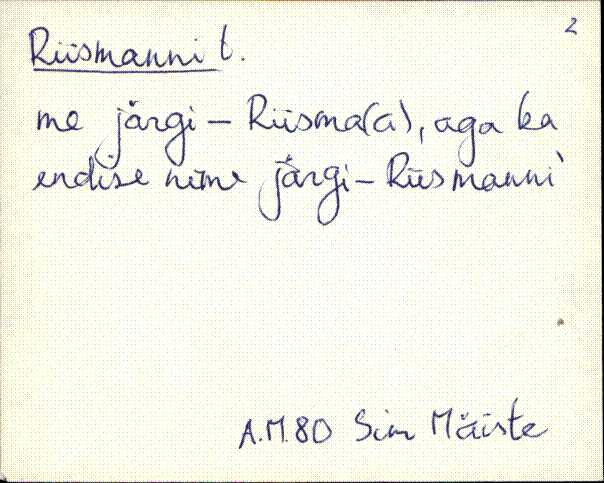 2
Riismanni t.
me järgi - Riisma(a), aga ka
endise nime järgi - Riismanni
A.M. 80 Sim Mäiste